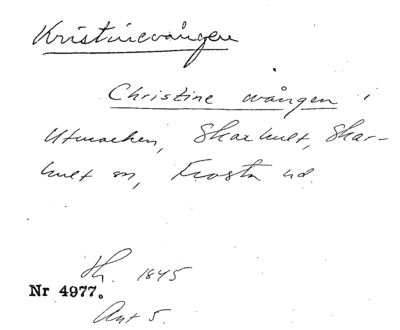 Kristinevången
Christine wången i
Utmarken, Skarhult, Skar-
hult sn, Frosta hd.
Sk. 1845
Nr 4977.
Ant 5.